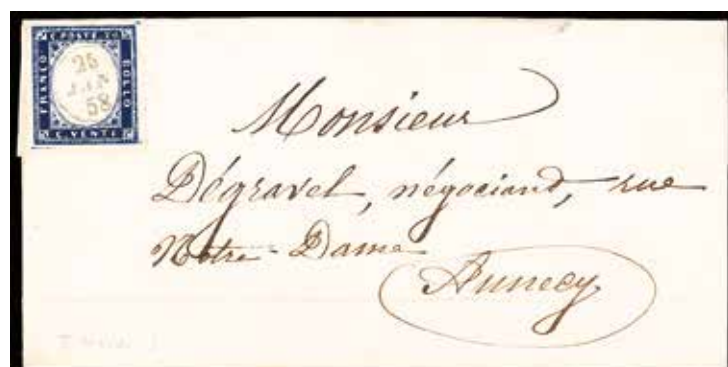 C. POSTE 20
FRANCO
BOLLO
C. VENTI
25
JAN
58
Monsieur
Dégravel, négociand, rue
Notre-Dame
Annecy